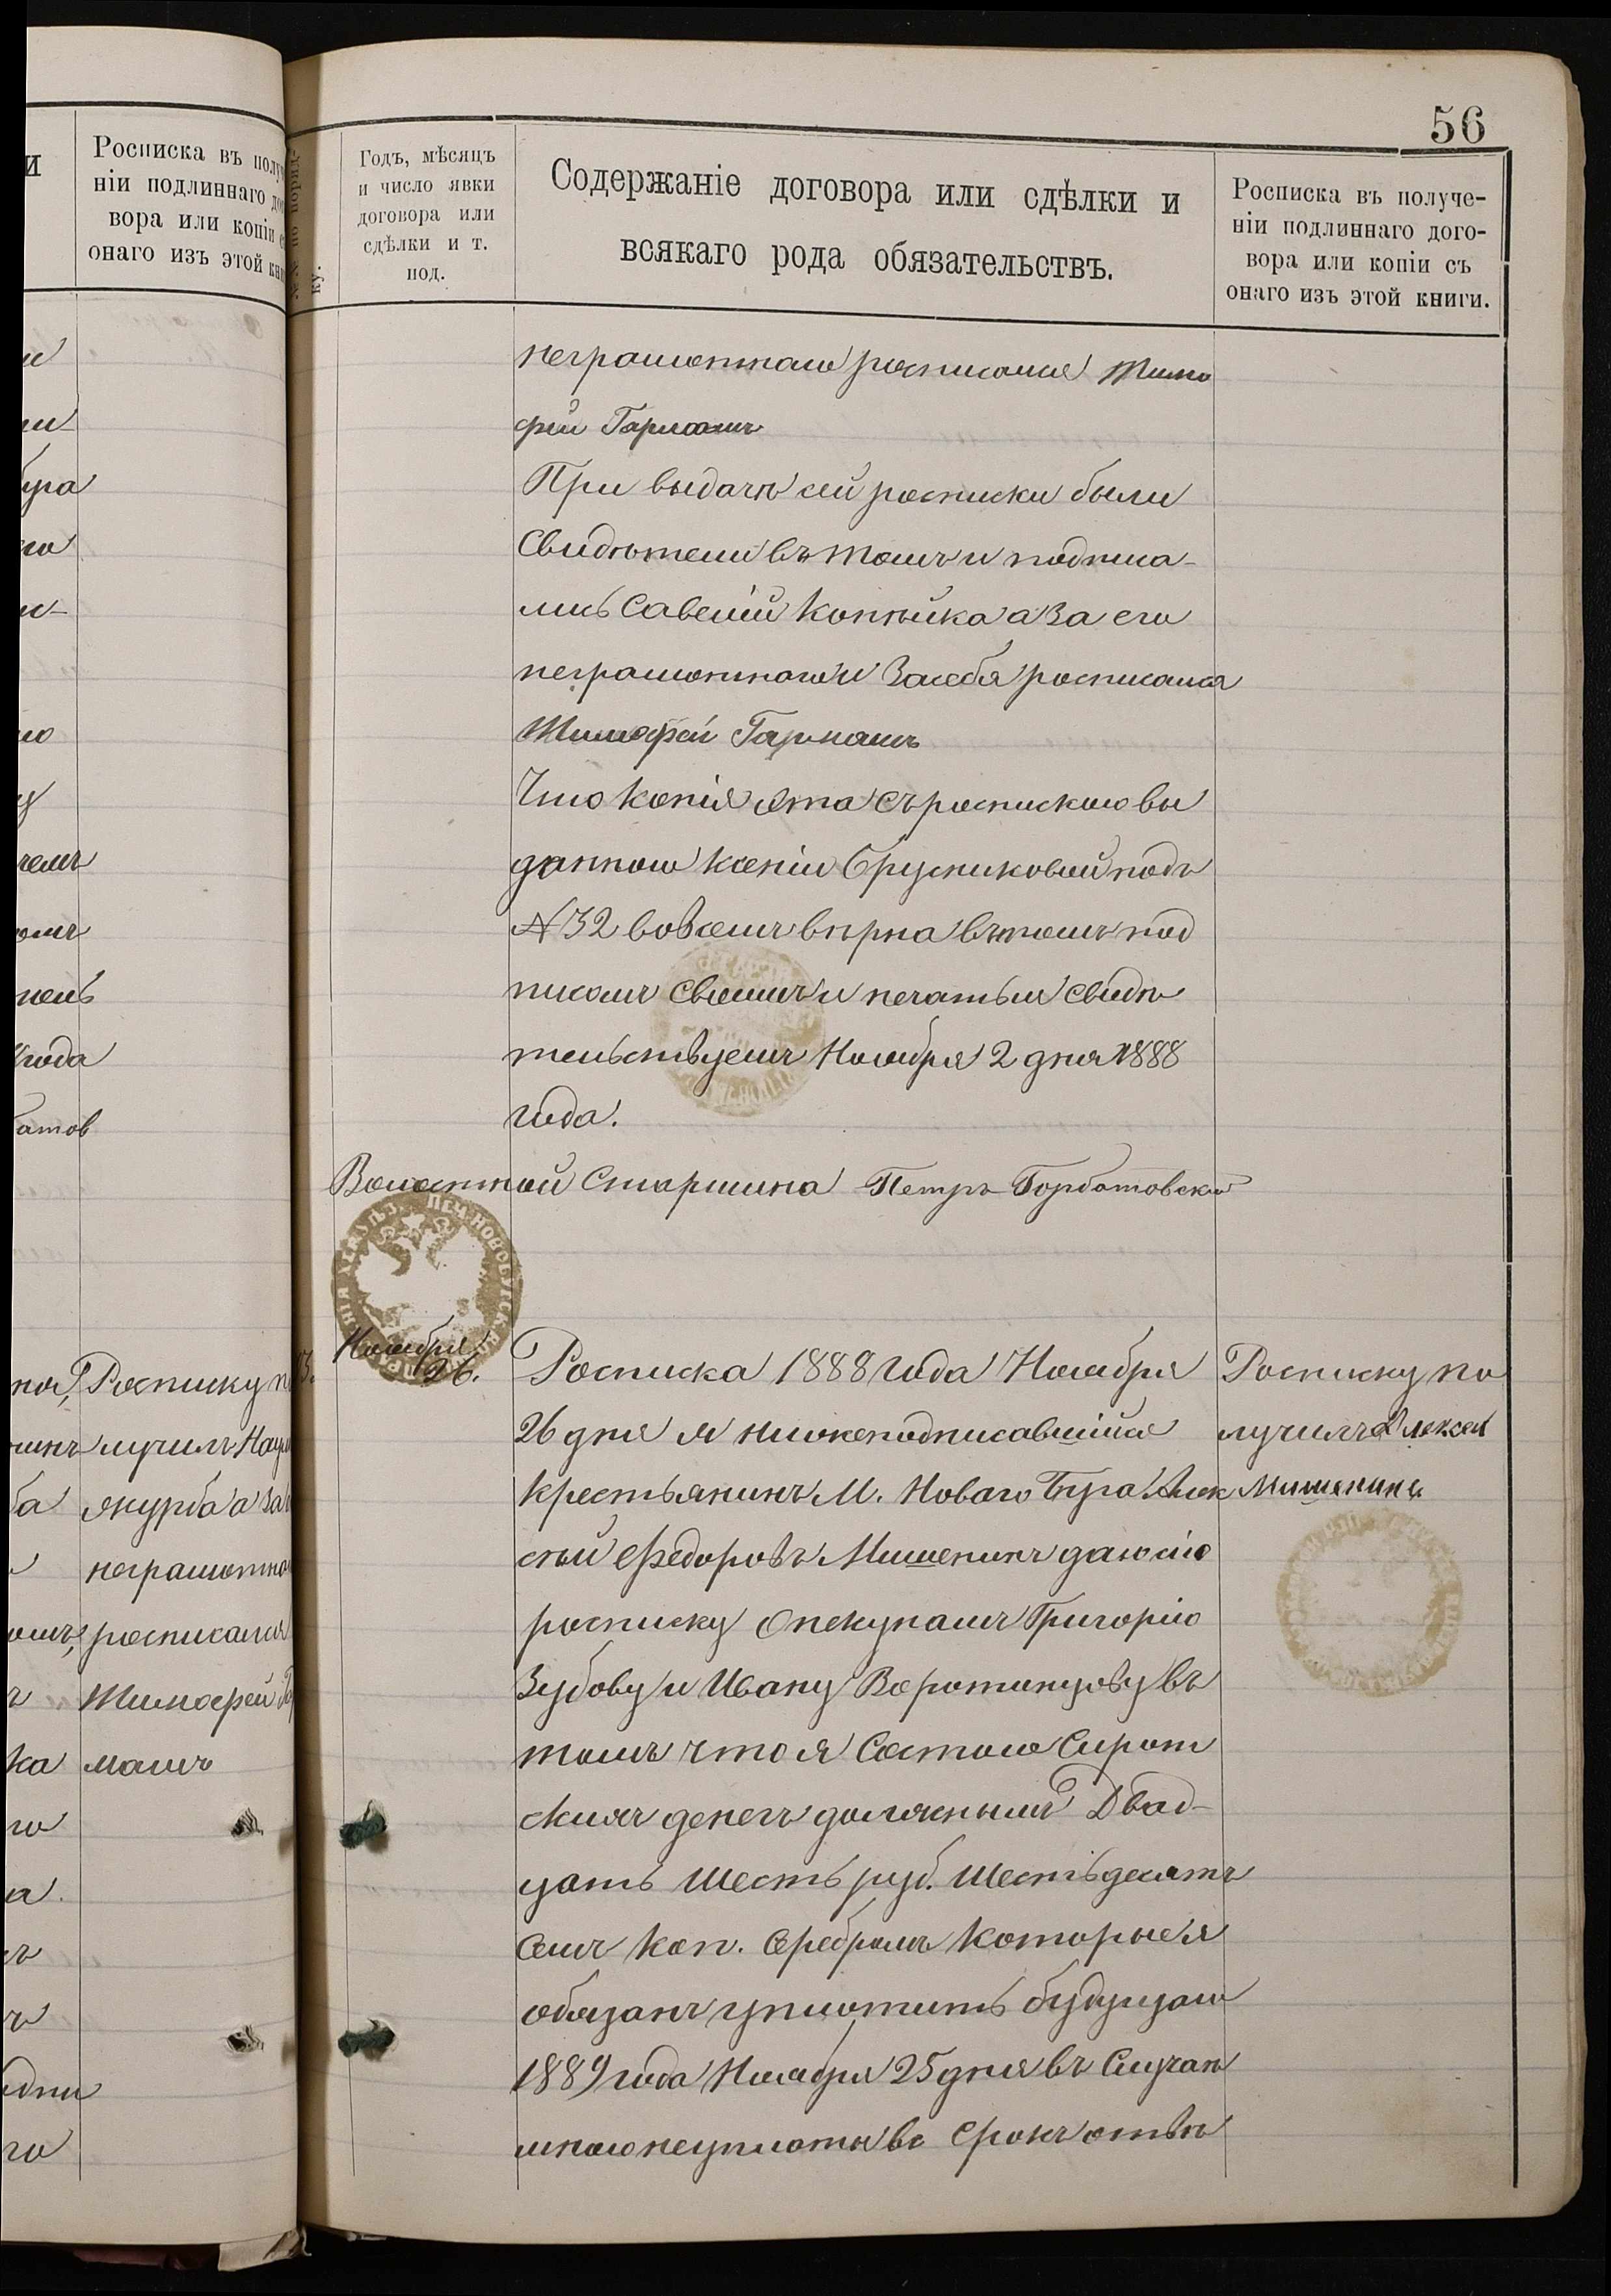 56
Росписка въ получе-
ніи подлиннаго дого-
вора или копіи съ
онаго изъ этой книги.
Годъ, мѣсяцъ
и число явки
договора или
сдѣлки и т.
под.
Содержаніе договора или сдѣлки и
всякаго рода обязательствъ.
Росписка въ получе-
ніи подлиннаго дого-
вора или копіи съ
онаго изъ этой книги.
неграмотнаго росписался Тимо
фей Гармашъ
При выдачѣ сей росписки были
Свидѣтели въ томъ и подписа-
лись Савелій Копѣйка а За его
неграмотнаго и Засебя росписался
Тимофей Гармашъ
Что Копія ѣта съ роспискою вы
данною Ксеніи Брусниковой подъ
№ 32 во всемъ вѣрна въ томъ под
писомъ своимъ и печатью свидѣ
тельствуемъ Ноября 2 дня 1888
года.
Волостной Старшина Петръ Горбатовскій
Ноября
26.
Росписка 1888 года Ноября
26 дня я нижеподписавшійся
Крестьянинъ М. Новаго Буга Алек
сѣй Федоровъ Мишенинъ даю сію
росписку Опекунамъ Григорію
Зубову и Ивану Воротинцову въ
томъ что я Состою Сирот
скихъ денегъ должнымъ Двад-
цать Шесть руб. Шестьдесятъ
Семъ Коп. Серебромъ Которые я
обязанъ уплотить будущаго
1889 года Ноября 25 дня въ Случаѣ
мною неуплоты въ Срокъ отвѣ
Росписку по
лучилъ Алексей
Мишенинъ
Росписку п
лучилъ
якурба а За
неграмотно
росписался
Тимофей Га
машъ